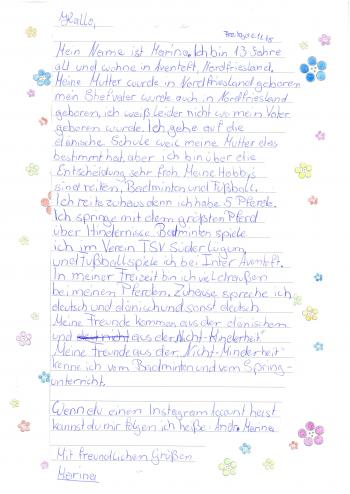 Hallo,
Freitag
Mein Name ist Marina. Ich bin 13 Jahre
alt und wohne in Aventoft, Nordfriesland.
Meine Mutter wurde in Nordfriesland geboren
mein Stiefvater wurde auch in Nordfriesland
geboren, ich weiß leider nicht wo mein Vater
geboren wurde. Ich gehe auf die
dänische Schule weil meine Mutter das
bestimmt hat, aber ich bin über die
Entscheidung sehr froh. Meine Hobby's
sind reiten, Badminton und Fußball.
Ich reite zuhause denn ich habe 5 Pferde.
Ich springe mit dem größten Pferd
über Hindernisse. Badminton spiele
ich im Verein TSV Süderlügum,
und Fußball spiele ich bei Inter Aventoft.
In meiner Freizeit bin ich viel draußen
bei meinen Pferden. Zuhause spreche ich
deutsch und dänisch und sonst deutsch
Meine Freunde kommen aus der dänischem
und aus der "Nicht-Minderheit"
Meine Freunde aus der "Nicht-Minderheit"
kenne ich vom Badminton und vom Spring-
unterricht.
Wenn du einen Instagram Account hast
kannst du mir folgen ich heiße: Marina
Mit freundlichen Grüßen
Marina